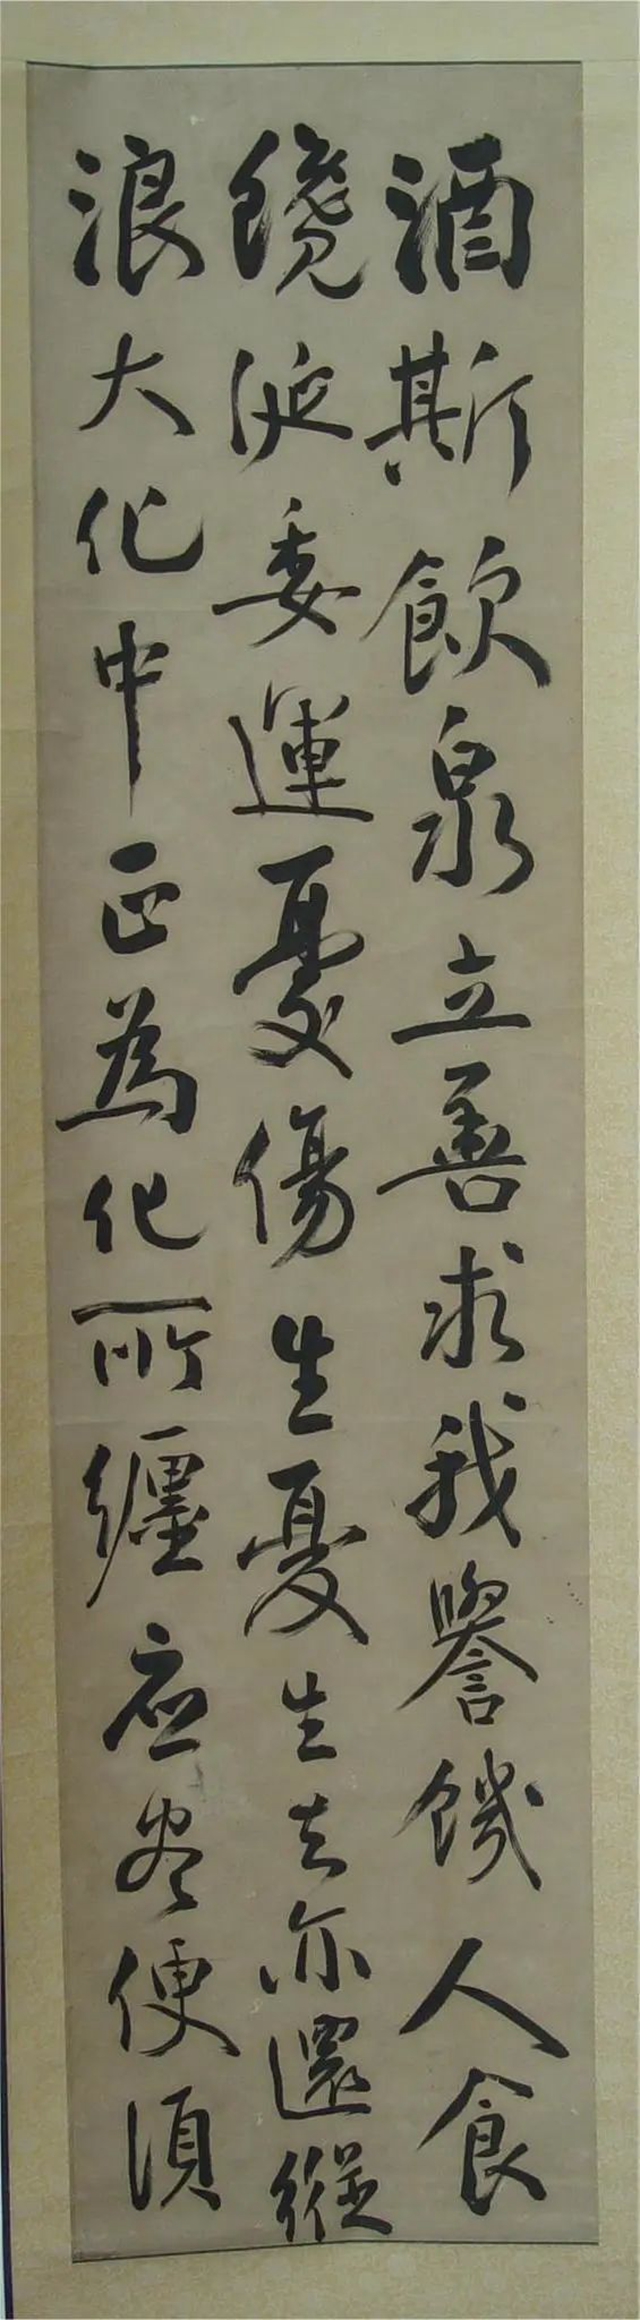 酒斯飲泉立善求我譽饑人食
饞涎委運憂傷生憂生去亦還縱
浪大化中正為化所纏应尽便須